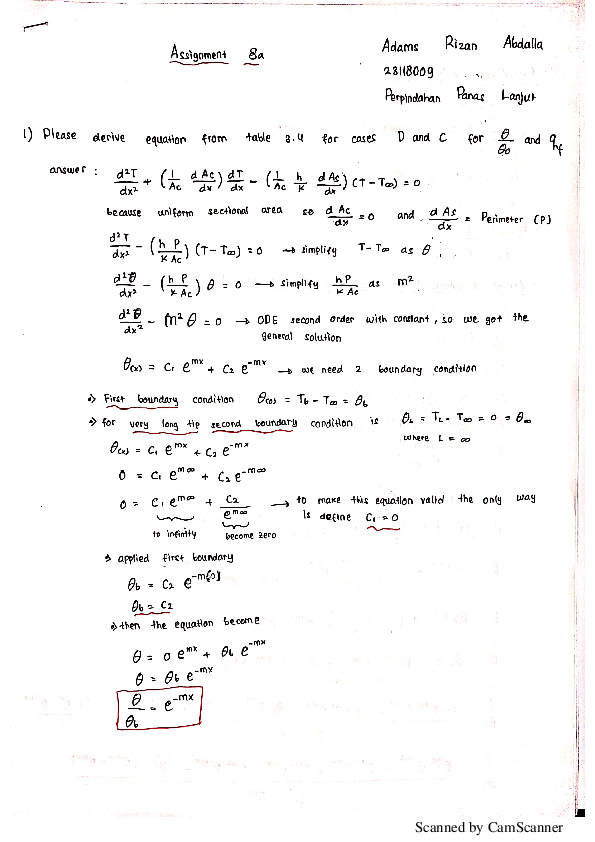 Assignment 8a
Adams Rizan Abdalla
23118009
Perpindahan Panas Lanjut
1) Please derive equation from table 3.4 for cases D and C for θ/θb and qf
answer : d²T/dx² + (1/Ac dAc/dx) dT/dx - (1/Ac h/k dAs/dx) (T - T∞) = 0
because uniform sectional area so dAc/dx = 0 and dAs/dx = Perimeter (P)
d²T/dx² - (h P/k Ac) (T - T∞) = 0 → simplify T - T∞ as θ
d²θ/dx² - (h P/k Ac) θ = 0 → simplify hP/kAc as m²
d²θ/dx² - m² θ = 0 → ODE second order with constant, so we got the
general solution
θ(x) = C₁ e^mx + C₂ e^-mx → we need 2 boundary condition
⇒ First boundary condition θ(0) = Tb - T∞ = θb
⇒ for very long tip second boundary condition is θL = TL - T∞ = 0 = θ∞
where L = ∞
θ(x) = C₁ e^mx + C₂ e^-mx
0 = C₁ e^m∞ + C₂ e^-m∞
0 = C₁ e^m∞ + C₂/e^m∞ → to make this equation valid the only way
is define C₁ = 0
to infinity become zero
⇒ applied first boundary
θb = C₂ e^-m[0]
θb = C₂
⇒ then the equation become
θ = 0 e^mx + θb e^-mx
θ = θb e^-mx
θ/θb = e^-mx
Scanned by CamScanner